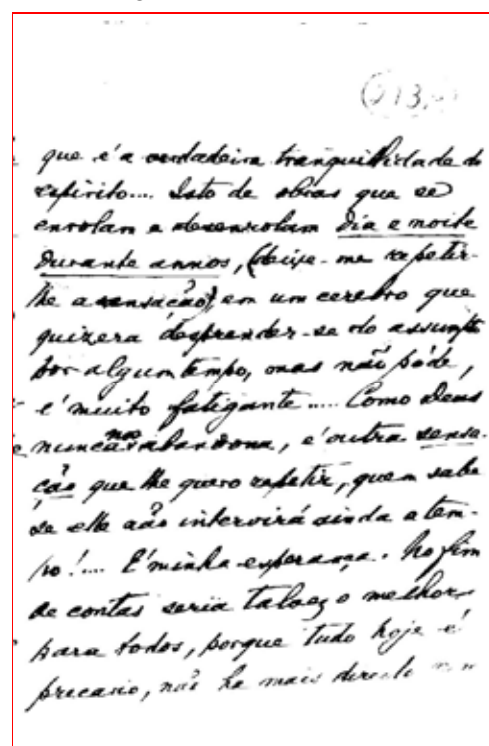 que é a verdadeira tranquillidade do
espirito.... Isto de obras que se
enrolam e desenrolam dia e noite
durante annos, (deixe-me repetir-
lhe a sensação) em um cerebro que
quizera desprender-se do assumpto
por algum tempo, mas não póde,
é muito fatigante..... Como Deus
nunca nos abandona, é outra sensa-
ção que lhe quero repetir, quem sabe
se elle não intervirá ainda a tem-
po!.... É minha esperança. No fim
de contas seria talvez o melhor
para todos, porque tudo hoje é
precario, não ha mais